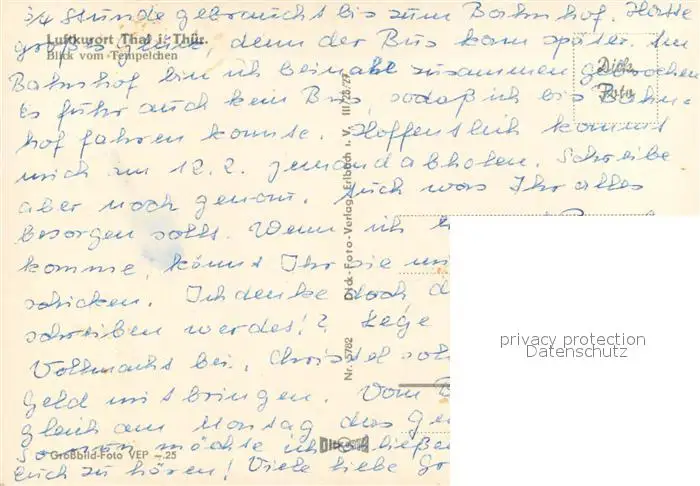 3/4 Stunde gebraucht bis zum Bahnhof. Hatte
großes Glück, denn der Bus kam später. Am
Luftkurort Thal i. Thür.
Blick vom Tempelchen
Bahnhof bin ich beinahe zusammen gebrochen
Es fuhr auch kein Bus, sodaß ich bis Bahn-
hof fahren konnte. Hoffentlich kommt
mich am 12. 2. jemand abholen. Schreibe
aber noch genau. Auch was Ihr alles
besorgen sollt. Wenn ich
komme, könnt Ihr sie mi
schicken. Ich denke doch d
schreiben werdet!? Lege
Vollmacht bei. Christel soll
Geld mitbringen. Vom
gleich am Montag das Ge
möchte ich schließen
Euch zu hören! Viele liebe Gr
Dick
Foto
Nr. 5782 Dick-Foto-Verlag, Erlbach i. V. III/26/27
Großbild-Foto VEP -.25
privacy protection
Datenschutz